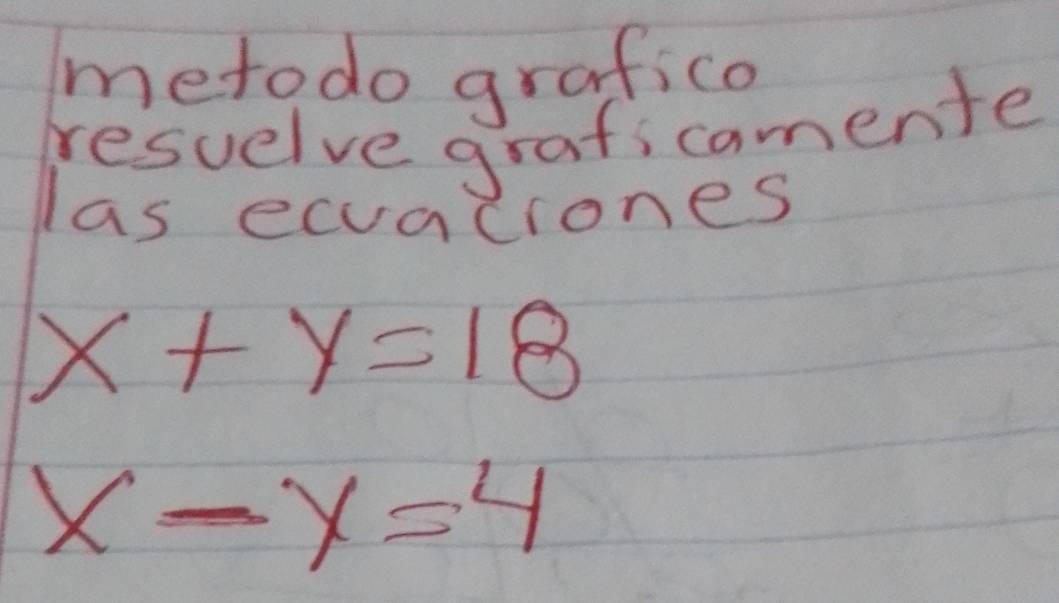 metodo grafico
resuelve graficamente
las ecuaciones
x + y = 18
x - y = 4